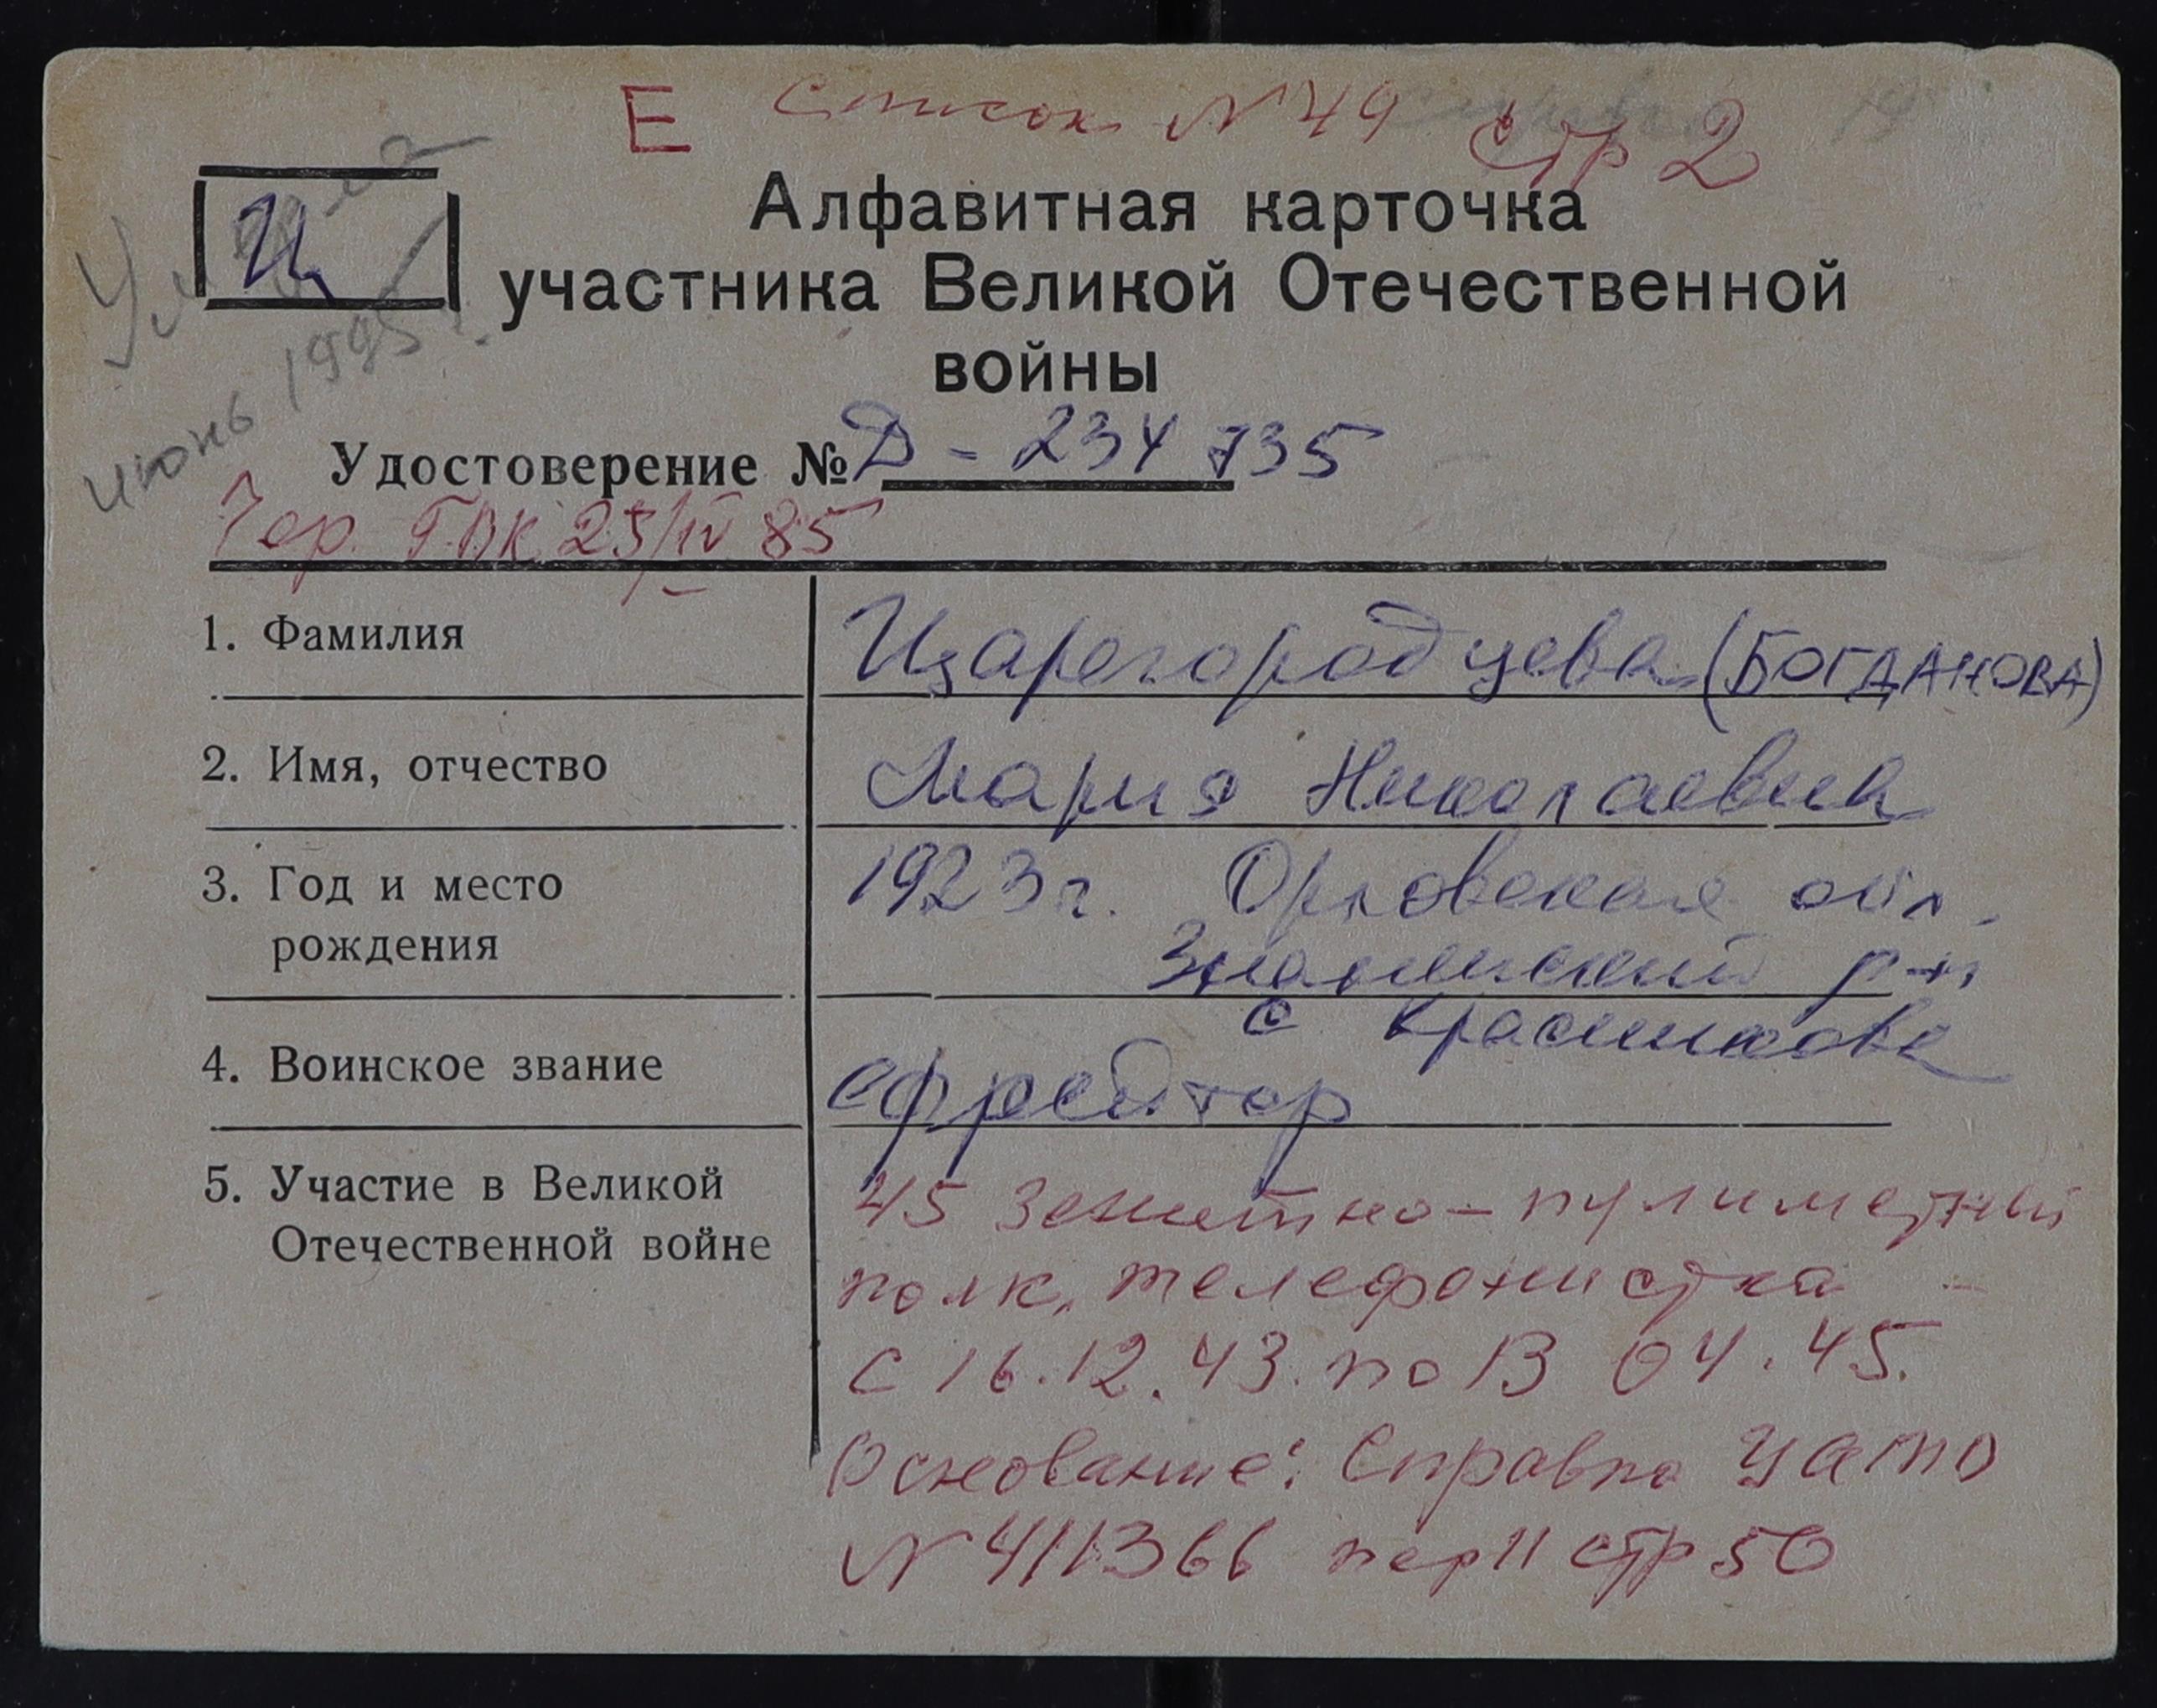 Е Список N 49 стр 2
Умерла
июнь 1995 г.
Ц
Алфавитная карточка
участника Великой Отечественной
войны
Удостоверение № Д - 234 735
Гор. ГВК 25/IV 85
1. Фамилия Царегородцева (БОГДАНОВА)
2. Имя, отчество Мария Николаевна
3. Год и место 1923 г. Орловская обл.
рождения Знаменский р-н
с Красниково
4. Воинское звание ефрейтор
5. Участие в Великой 45 зенитно-пулиметный
Отечественной войне полк, телефонистка
с 16.12.43. по 13 04.45.
Основание: Справка ЦАМО
N 411366 пер 11 стр 50